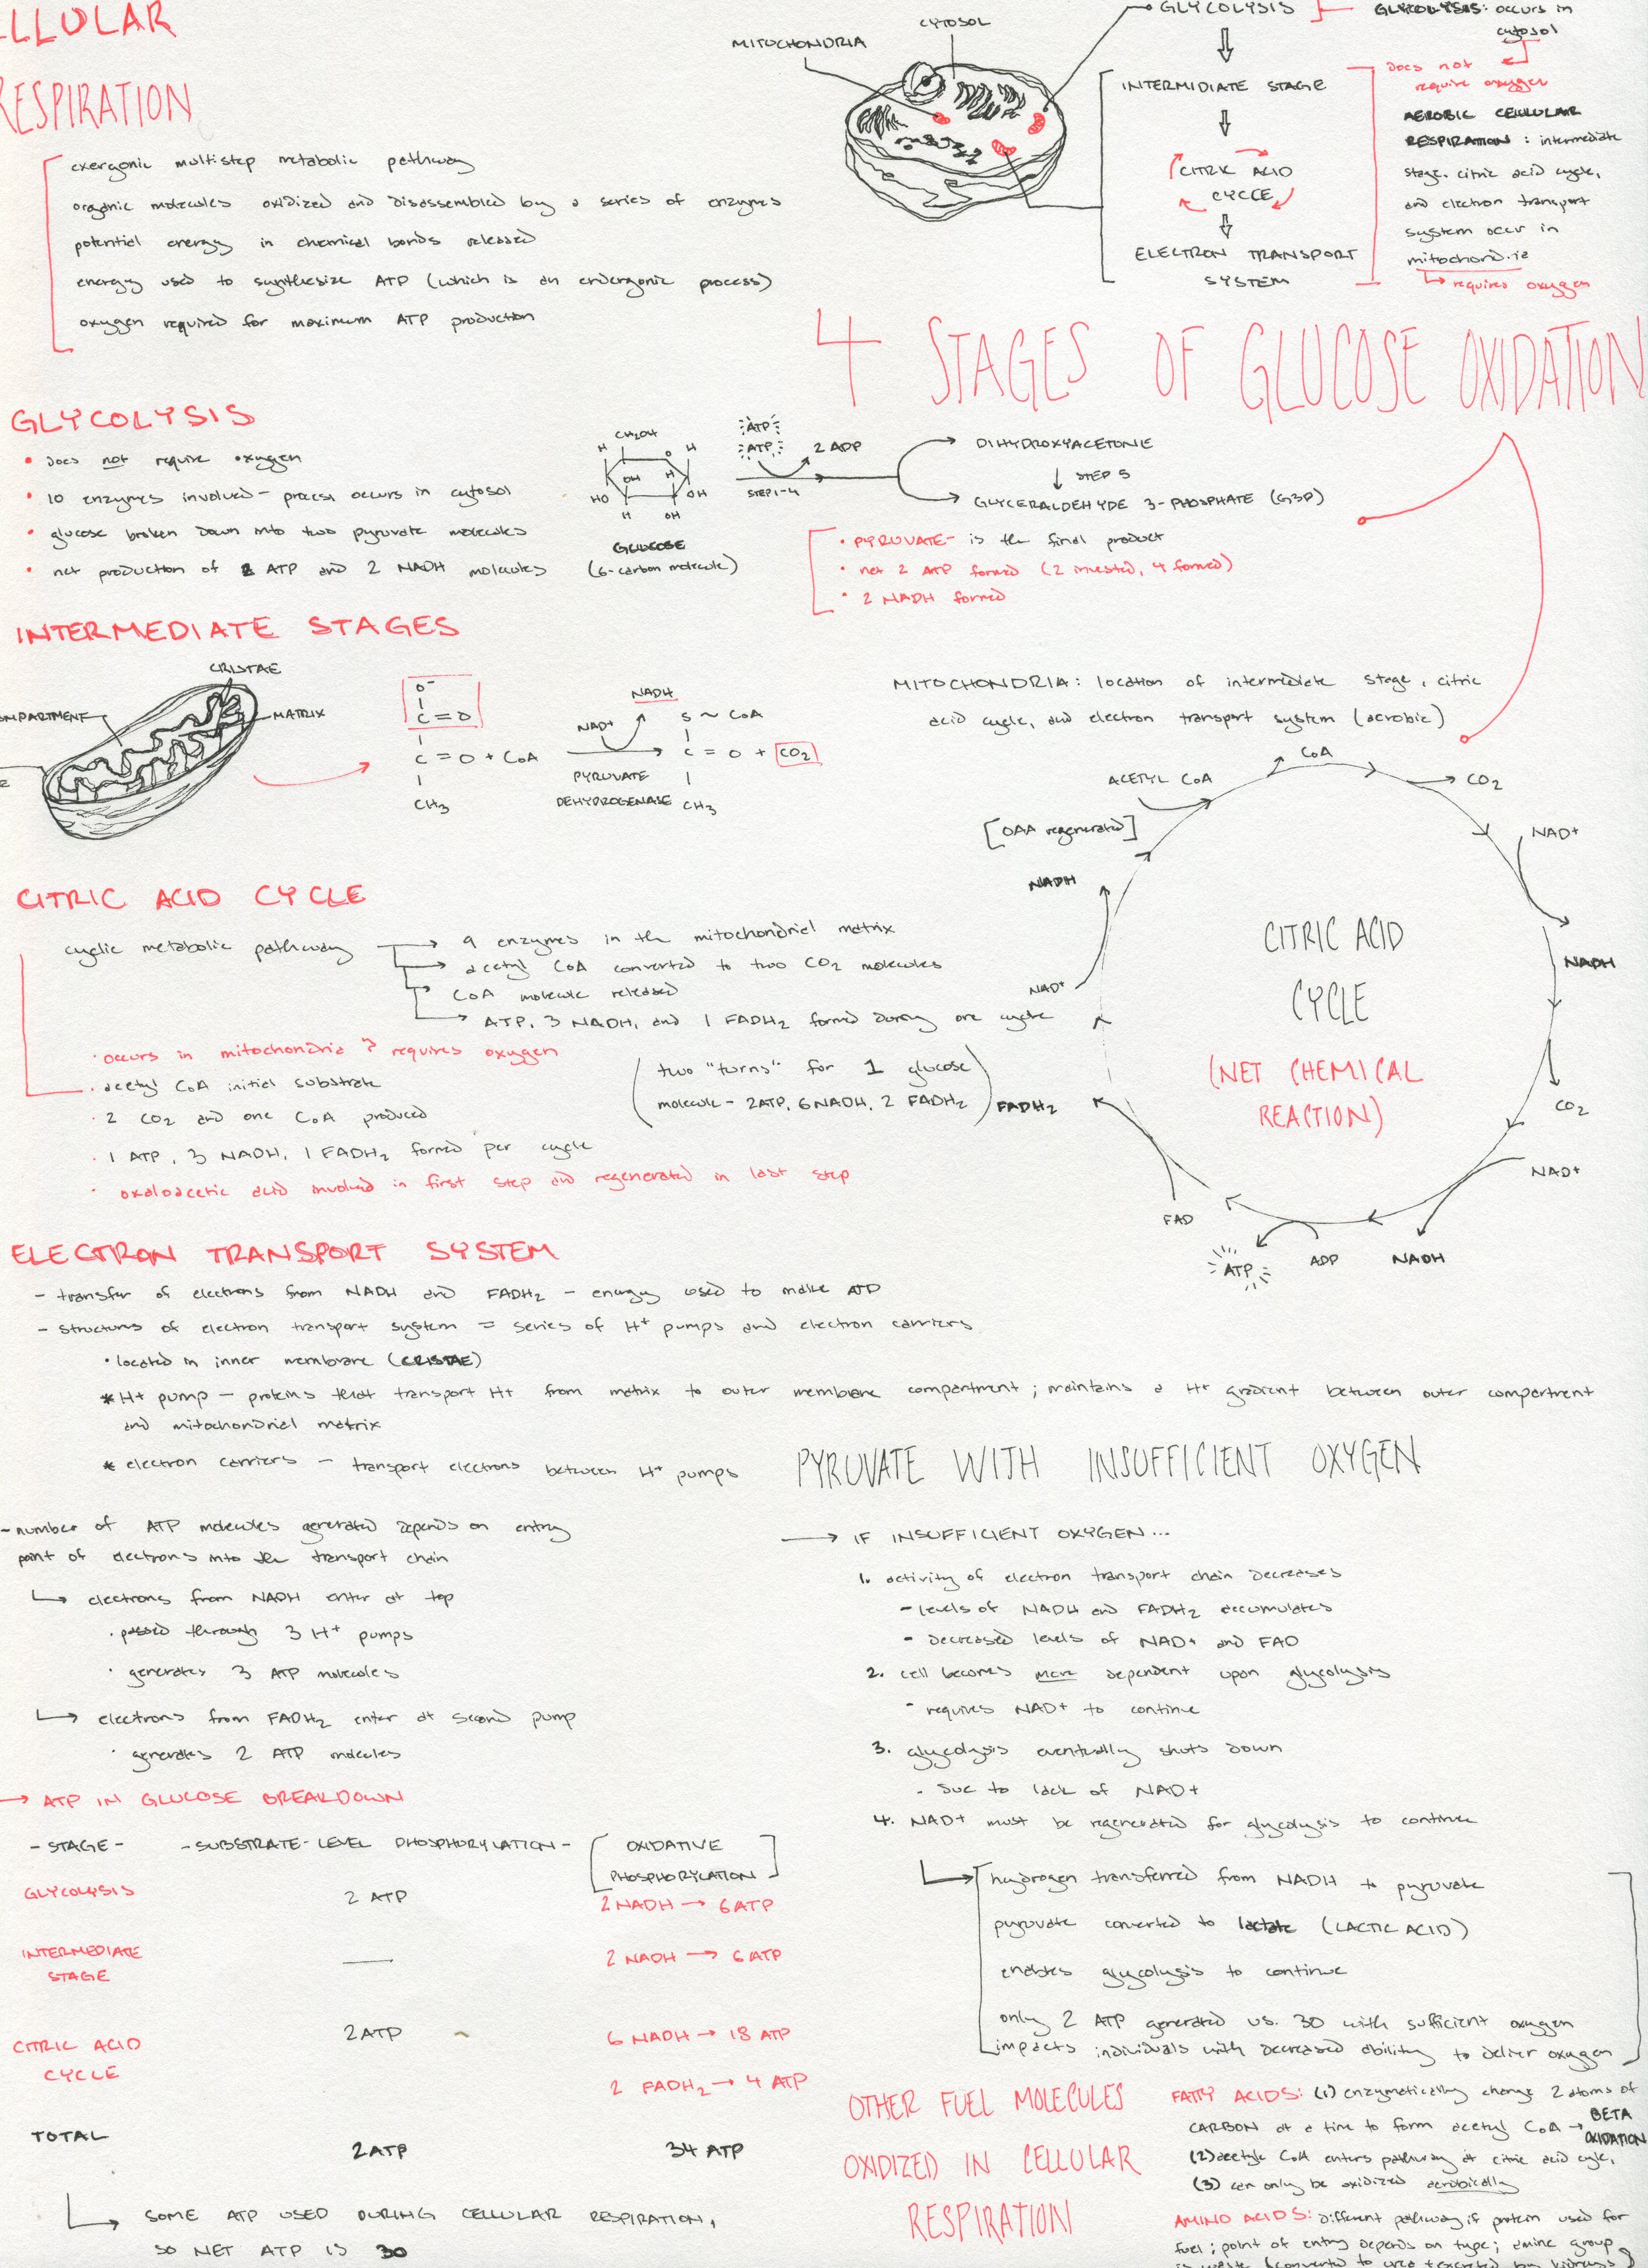 LLULAR
RESPIRATION
exergonic multistep metabolic pathway
organic molecules oxidized and disassembled by a series of enzymes
potential energy in chemical bonds released
energy used to synthesize ATP (which is an endergonic process)
oxygen required for maximum ATP production
MITOCHONDRIA
CYTOSOL
GLYCOLYSIS
INTERMIDIATE STAGE
CITRIC ACID
CYCLE
ELECTRON TRANSPORT
SYSTEM
GLYCOLYSIS: occurs in
cytosol
does not
require oxygen
AEROBIC CELLULAR
RESPIRATION: intermediate
stage, citric acid cycle,
and electron transport
system occur in
mitochondria
requires oxygen
4 STAGES OF GLUCOSE OXIDATION
GLYCOLYSIS
• does not require oxygen
• 10 enzymes involved - process occurs in cytosol
• glucose broken down into two pyruvate molecules
• net production of 2 ATP and 2 NADH molecules
CH2OH
H O H
OH H
HO OH
H OH
GLUCOSE
(6-carbon molecule)
ATP
ATP 2 ADP
STEP 1-4
DIHYDROXYACETONE
STEP 5
GLYCERALDEHYDE 3-PHOSPHATE (G3P)
• PYRUVATE - is the final product
• net 2 ATP formed (2 invested, 4 formed)
• 2 NADH formed
INTERMEDIATE STAGES
CRISTAE
MPARTMENT
MATRIX
E
O-
C = O
C = O + CoA
CH3
NAD+
NADH
PYRUVATE
DEHYDROGENASE
S ~ CoA
C = O + CO2
CH3
MITOCHONDRIA: location of intermediate stage, citric
acid cycle, and electron transport system (aerobic)
ACETYL CoA
CoA
CO2
[OAA regenerated]
NAD+
NADH
NADH
NAD+
CO2
NAD+
NADH
ADP
ATP
FAD
FADH2
CITRIC ACID
CYCLE
(NET CHEMICAL
REACTION)
CITRIC ACID CYCLE
cyclic metabolic pathway
9 enzymes in the mitochondrial matrix
acetyl CoA converted to two CO2 molecules
CoA molecule released
ATP, 3 NADH, and 1 FADH2 formed during one cycle
· occurs in mitochondria ? requires oxygen
· acetyl CoA initial substrate
· 2 CO2 and one CoA produced
· 1 ATP, 3 NADH, 1 FADH2 formed per cycle
· oxaloacetic acid involved in first step and regenerated in last step
(two "turns" for 1 glucose
molecule - 2ATP, 6NADH, 2 FADH2)
ELECTRON TRANSPORT SYSTEM
- transfer of electrons from NADH and FADH2 - energy used to make ATP
- structures of electron transport system = series of H+ pumps and electron carriers
• located in inner membrane (CRISTAE)
* H+ pump - proteins that transport H+ from matrix to outer membrane compartment; maintains a H+ gradient between outer compartment
and mitochondrial matrix
* electron carriers - transport electrons between H+ pumps
- number of ATP molecules generated depends on entry
point of electrons into the transport chain
electrons from NADH enter at top
· passed through 3 H+ pumps
· generates 3 ATP molecules
electrons from FADH2 enter at second pump
· generates 2 ATP molecules
→ ATP IN GLUCOSE BREAKDOWN
- STAGE - - SUBSTRATE-LEVEL PHOSPHORYLATION - [OXIDATIVE
PHOSPHORYLATION]
GLYCOLYSIS 2 ATP 2 NADH → 6 ATP
INTERMEDIATE
STAGE — 2 NADH → 6 ATP
CITRIC ACID
CYCLE 2ATP 6 NADH → 18 ATP
2 FADH2 → 4 ATP
TOTAL 2ATP 34 ATP
SOME ATP USED DURING CELLULAR RESPIRATION,
SO NET ATP IS 30
PYRUVATE WITH INSUFFICIENT OXYGEN
→ IF INSUFFICIENT OXYGEN...
1. activity of electron transport chain decreases
- levels of NADH and FADH2 accumulates
- decreased levels of NAD+ and FAD
2. cell becomes more dependent upon glycolysis
- requires NAD+ to continue
3. glycolysis eventually shuts down
- due to lack of NAD+
4. NAD+ must be regenerated for glycolysis to continue
hydrogen transferred from NADH to pyruvate
pyruvate converted to lactate (LACTIC ACID)
enables glycolysis to continue
only 2 ATP generated vs. 30 with sufficient oxygen
impacts individuals with decreased ability to deliver oxygen
OTHER FUEL MOLECULES
OXIDIZED IN CELLULAR
RESPIRATION
FATTY ACIDS: (1) enzymatically change 2 atoms of
CARBON at a time to form acetyl CoA → BETA
OXIDATION
(2) acetyle CoA enters pathway at citric acid cycle,
(3) can only be oxidized aerobically
AMINO ACIDS: different pathway if protein used for
fuel; point of entry depends on type; amine group
is waste (converted to urea + excreted by kidneys